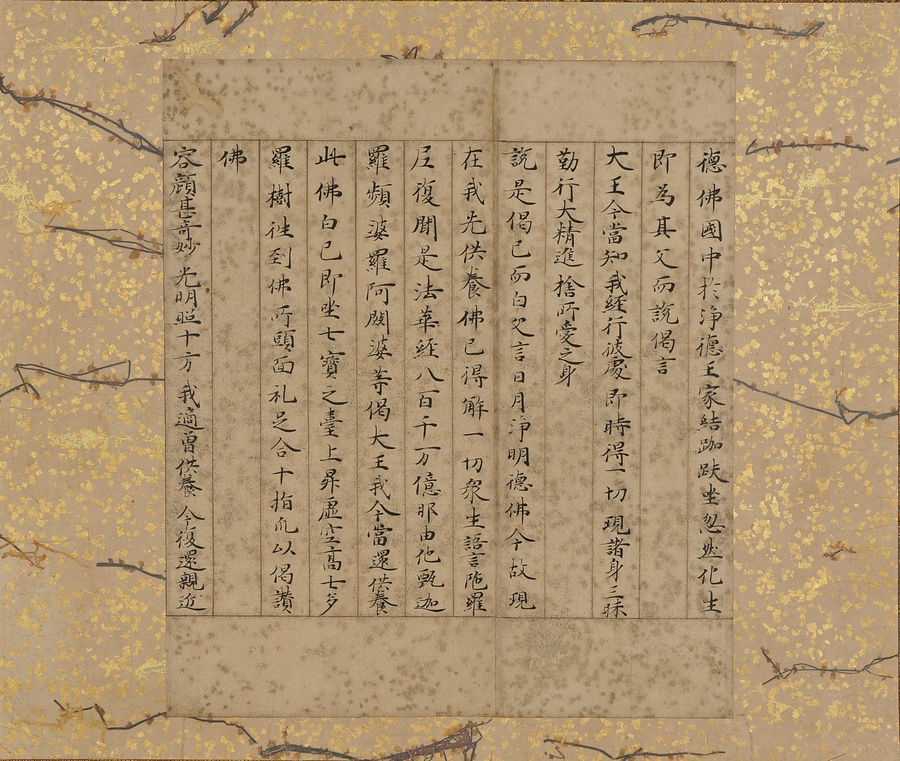 德佛國中於淨德王家結跏趺坐忽然化生
即為其父而說偈言
大王今當知我經行彼處即時得一切現諸身三昧
勤行大精進捨所愛之身
說是偈已而白父言日月淨明德佛今故現
在我先供養佛已得解一切衆生語言陁羅
尼復聞是法華經八百千万億那由他甄迦
羅頻婆羅阿閦婆等偈大王我今當還供養
此佛白已即坐七寶之臺上昇虛空高七多
羅樹往到佛所頭面礼足合十指爪以偈讚
佛
容顏甚奇妙光明照十方我適曾供養今復還親近